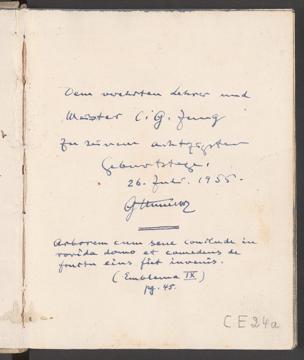 Dem verehrten Lehrer und
Meister C. G. Jung
zu seinem achtzigsten
Geburtstage.
26. Juli. 1955.
Arborem cum sene conclude in
rorida domo et comedens de
fructu eius fiet iuvenis.
(Emblema IX)
pg. 45.
C E 24a